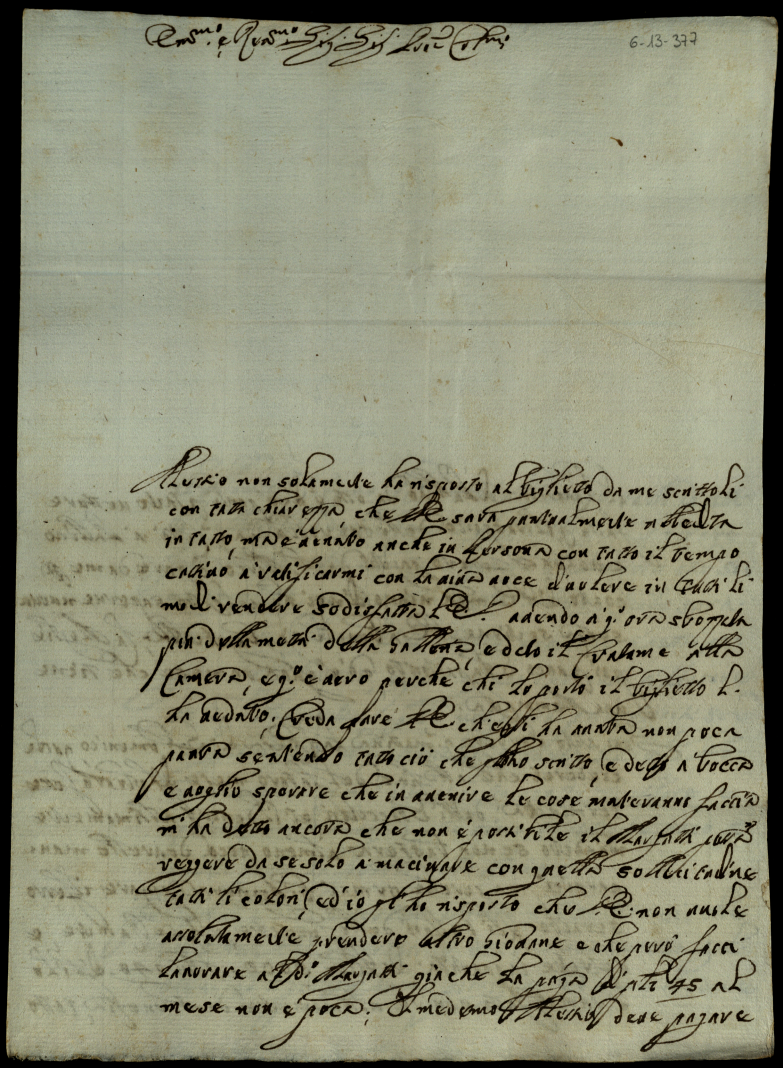 Em.mo e Rev.mo Sig. Sig. P.ron Col.mo
6-13-377
Alessio non solamente ha risposto al biglietto da me scrittoli
con tutta chiarezza, che V.E. sarà puntualmente ubbedita
in tutto, ma è venuto anche in Persona con tutto il tempo
cattivo à ratificarmi con la viva voce d'volere in tutti li
modi rendere sodisfatta V.E. avendo à q.st'ora
più della metà della e delo il Catrame alla
Camera, e q.o è vero perche chi lo portò il biglietto l
ha veduto. Creda pure V.E. che li ha avuta non poca
paura sentendo tutto ciò che gl'ho scritto, e detto à bocca
e voglio sperare che in avenire le cose muteranno faccia
m'ha detto ancora che non è possibile il possa
reggere da se solo à macinare con quella sollecitudine
tutti li colori, ed io gl'ho risposto che V.E. non vuole
assolutamente prendere altro Giovane e che però facci
lavorare al d.o già che la paga di 45 al
mese non è poca. Il medemo Alessio deve pagare